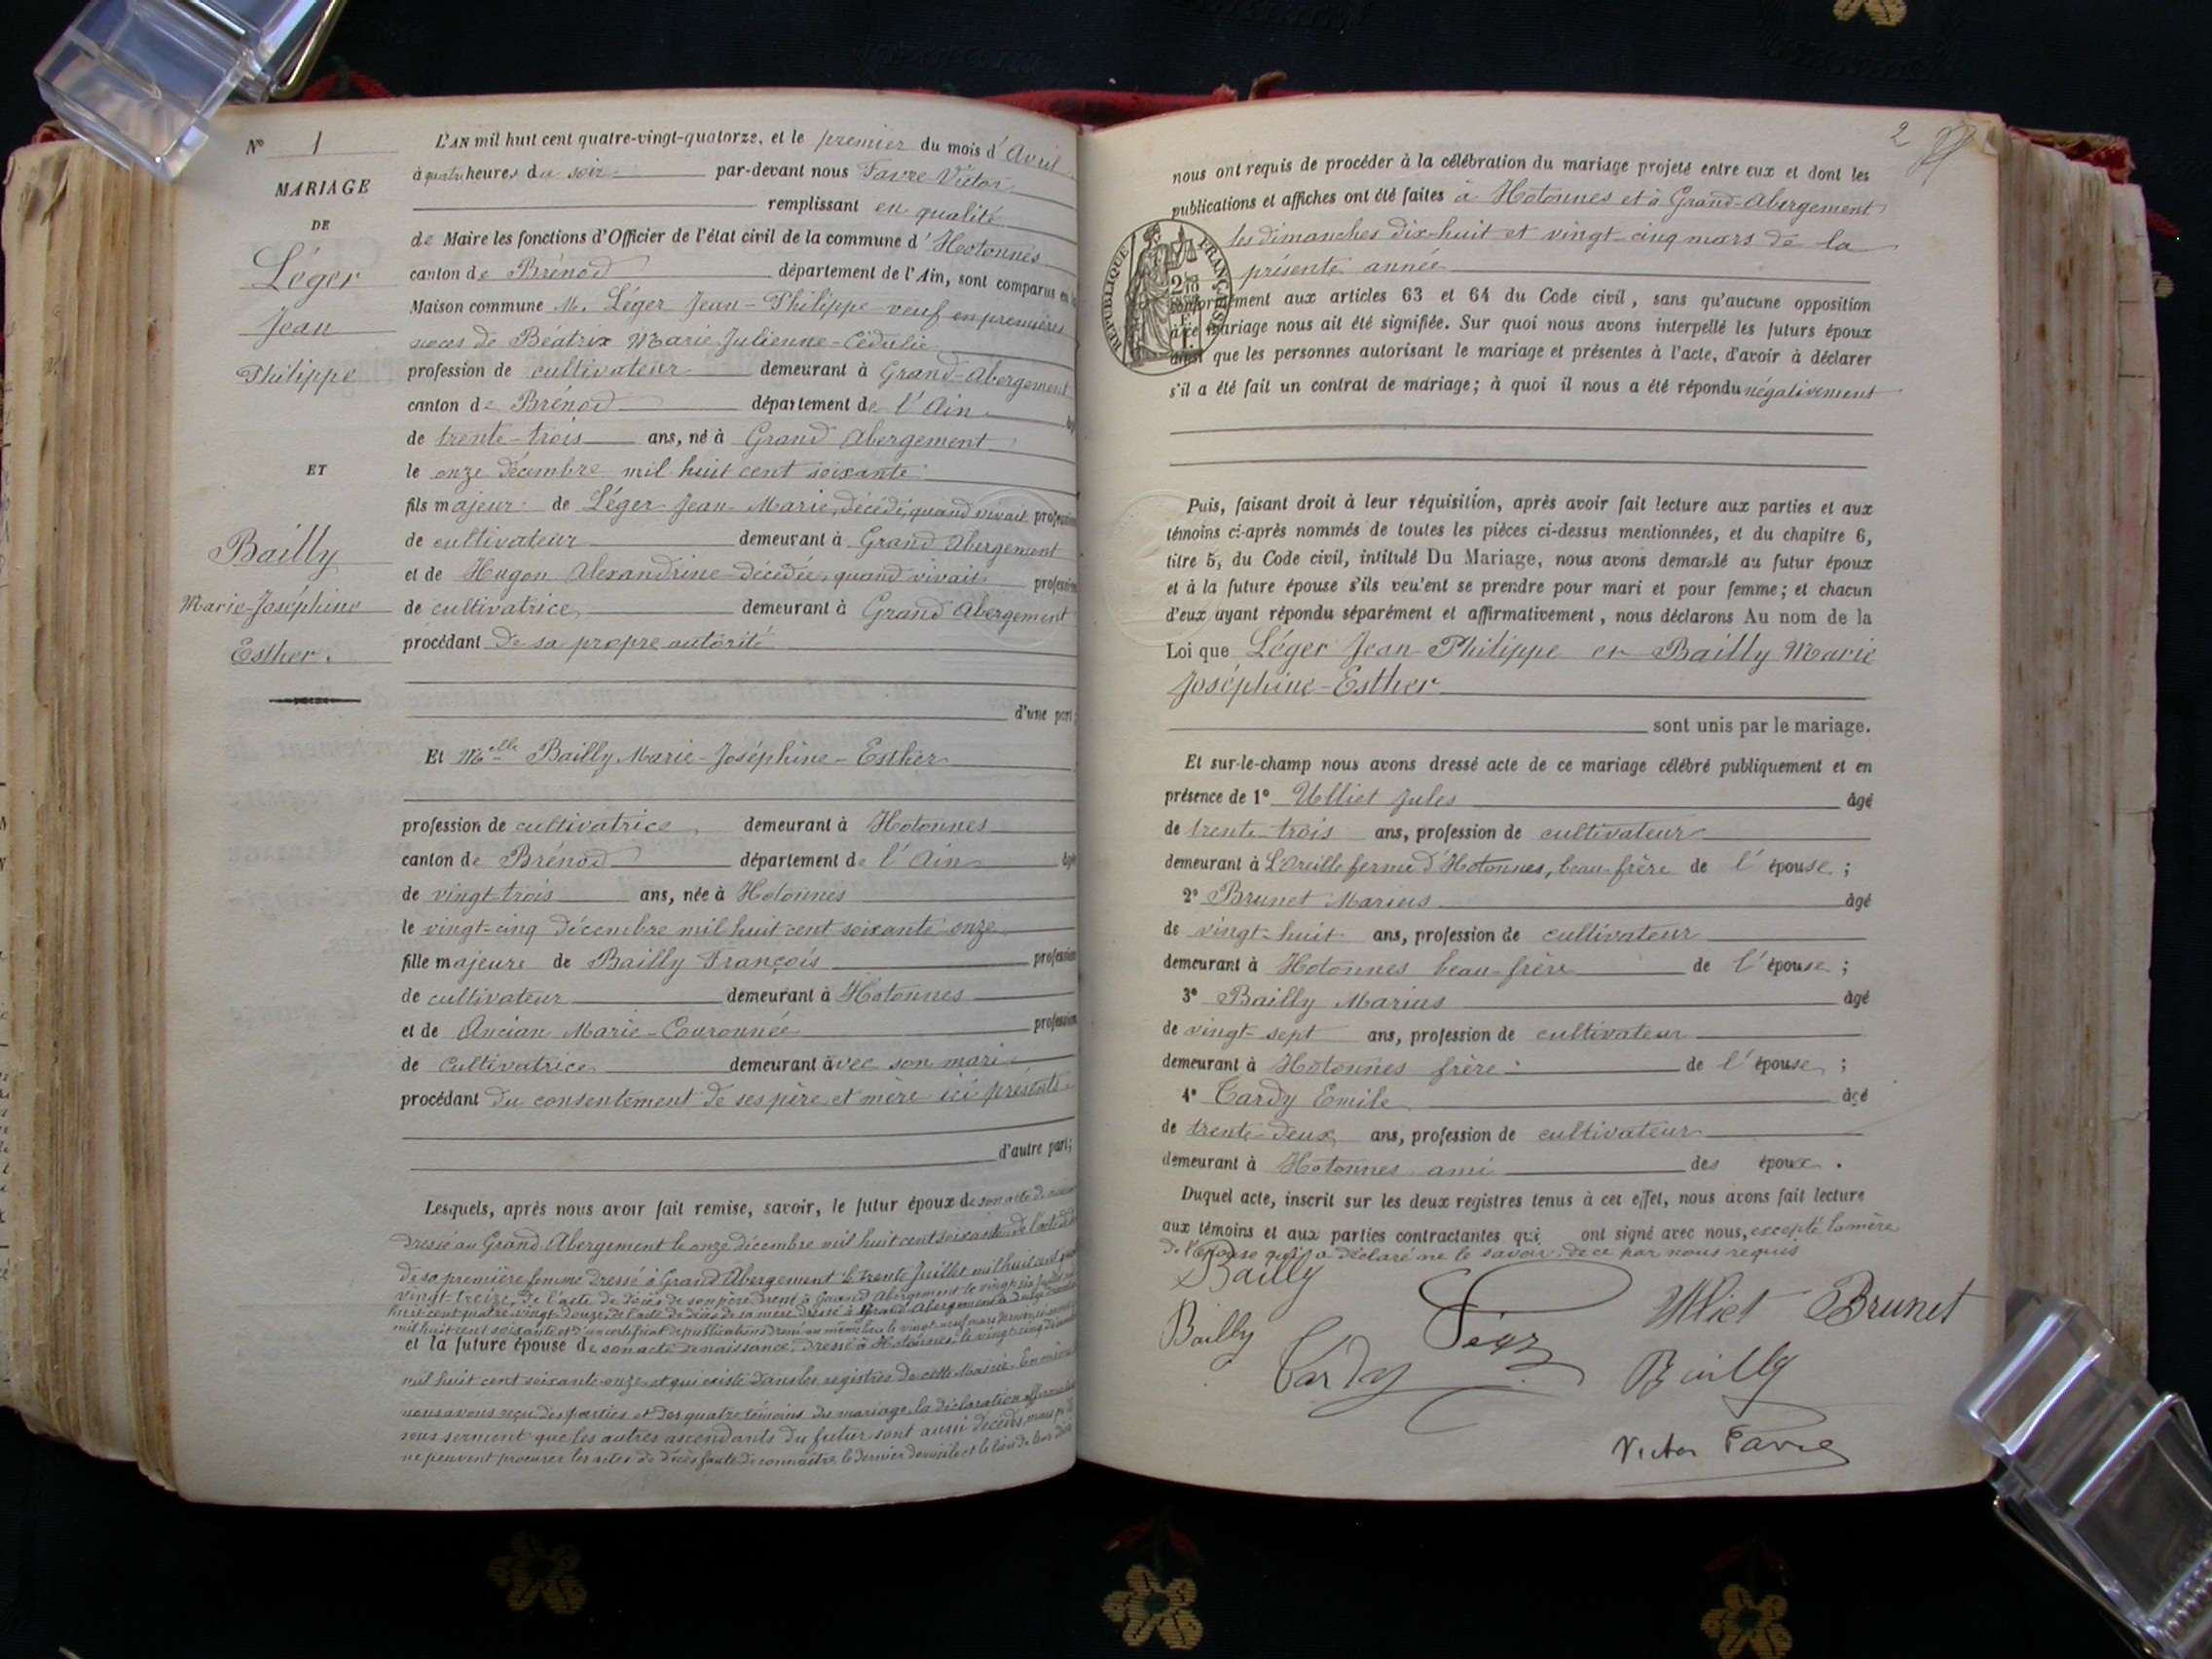 N° 1
MARIAGE
DE
Léger
Jean
Philippe
ET
Bailly
Marie-Joséphine
Esther.
L'AN mil huit cent quatre-vingt-quatorze, et le premier du mois d'Avril
à quatre heures du soir par-devant nous Favre Victor
remplissant en qualité
de Maire les fonctions d'Officier de l'état civil de la commune d'Hotonnes
canton de Brénod département de l'Ain, sont comparus en la
Maison commune M. Léger Jean-Philippe veuf en premières
noces de Béatrix Marie Julienne-Cédulie
profession de cultivateur demeurant à Grand-Abergement
canton de Brénod département de l'Ain
de trente-trois ans, né à Grand Abergement
le onze décembre mil huit cent soixante
fils majeur de Léger Jean Marie, décédé, quand vivait profession
de cultivateur demeurant à Grand Abergement
et de Hugon Alexandrine décédée, quand vivait profession
de cultivatrice demeurant à Grand Abergement
procédant de sa propre autorité
d'une part;
Et Melle Bailly Marie-Joséphine-Esther
profession de cultivatrice demeurant à Hotonnes
canton de Brénod département de l'Ain âgée
de vingt-trois ans, née à Hotonnes
le vingt-cinq décembre mil huit cent soixante onze
fille majeure de Bailly François profession
de cultivateur demeurant à Hotonnes
et de Ancian Marie-Couronnée profession
de Cultivatrice demeurant avec son mari
procédant du consentement de ses père et mère ici présents
d'autre part;
Lesquels, après nous avoir fait remise, savoir, le futur époux de son acte de
dressé au Grand Abergement le onze décembre mil huit cent soixante de l'acte de
de sa première femme dressé à Grand Abergement le trente Juillet mil huit cent
vingt-treize, de l'acte de décès de son père dressé à Grand Abergement le vingt-six Juillet
huit cent quatre-vingt-douze, de l'acte de décès de sa mère dressé à Grand Abergement
mil huit cent soixante et d'un certificat de publications dressé au même lieu le vingt-neuf mars dernier
et la future épouse de son acte de naissance, dressé à Hotonnes le vingt-cinq
mil huit cent soixante-onze et qui existe dans les registres de cette Mairie. En
nous avons reçu des parties et des quatre témoins du mariage, la déclaration
sous serment que les autres ascendants du futur sont aussi décédés, mais
ne peuvent procurer les actes de décès faute de connaître le dernier domicile et le lieu de leur
2
nous ont requis de procéder à la célébration du mariage projeté entre eux et dont les
publications et affiches ont été faites à Hotonnes et à Grand-Abergement
les dimanches dix-huit et vingt-cinq mars de la
présente année
RÉPUBLIQUE FRANÇAISE
conformément aux articles 63 et 64 du Code civil, sans qu'aucune opposition
à ce mariage nous ait été signifiée. Sur quoi nous avons interpellé les futurs époux
ainsi que les personnes autorisant le mariage et présentes à l'acte, d'avoir à déclarer
s'il a été fait un contrat de mariage; à quoi il nous a été répondu négativement
Puis, faisant droit à leur réquisition, après avoir fait lecture aux parties et aux
témoins ci-après nommés de toutes les pièces ci-dessus mentionnées, et du chapitre 6,
titre 5, du Code civil, intitulé Du Mariage, nous avons demandé au futur époux
et à la future épouse s'ils veulent se prendre pour mari et pour femme; et chacun
d'eux ayant répondu séparément et affirmativement, nous déclarons Au nom de la
Loi que Léger Jean-Philippe et Bailly Marie
Joséphine-Esther
sont unis par le mariage.
Et sur-le-champ nous avons dressé acte de ce mariage célébré publiquement et en
présence de 1° Ulliet Jules âgé
de trente-trois ans, profession de cultivateur
demeurant à L'Oreille ferme d'Hotonnes, beau-frère de l'épouse;
2° Brunet Marius âgé
de vingt-huit ans, profession de cultivateur
demeurant à Hotonnes beau-frère de l'épouse;
3° Bailly Marius âgé
de vingt-sept ans, profession de cultivateur
demeurant à Hotonnes frère de l'épouse;
4° Tardy Emile âgé
de trente-deux ans, profession de cultivateur
demeurant à Hotonnes ami des époux.
Duquel acte, inscrit sur les deux registres tenus à cet effet, nous avons fait lecture
aux témoins et aux parties contractantes qui ont signé avec nous, excepté la mère
de l'épouse qui a déclaré ne le savoir de ce par nous requis
Bailly
Ulliet Brunet
Bailly
Tardy
Bailly
Victor Favre